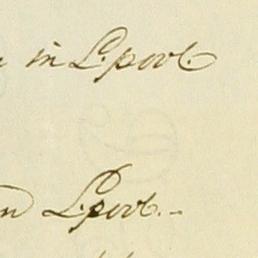 in L:pool.
L:pool.-